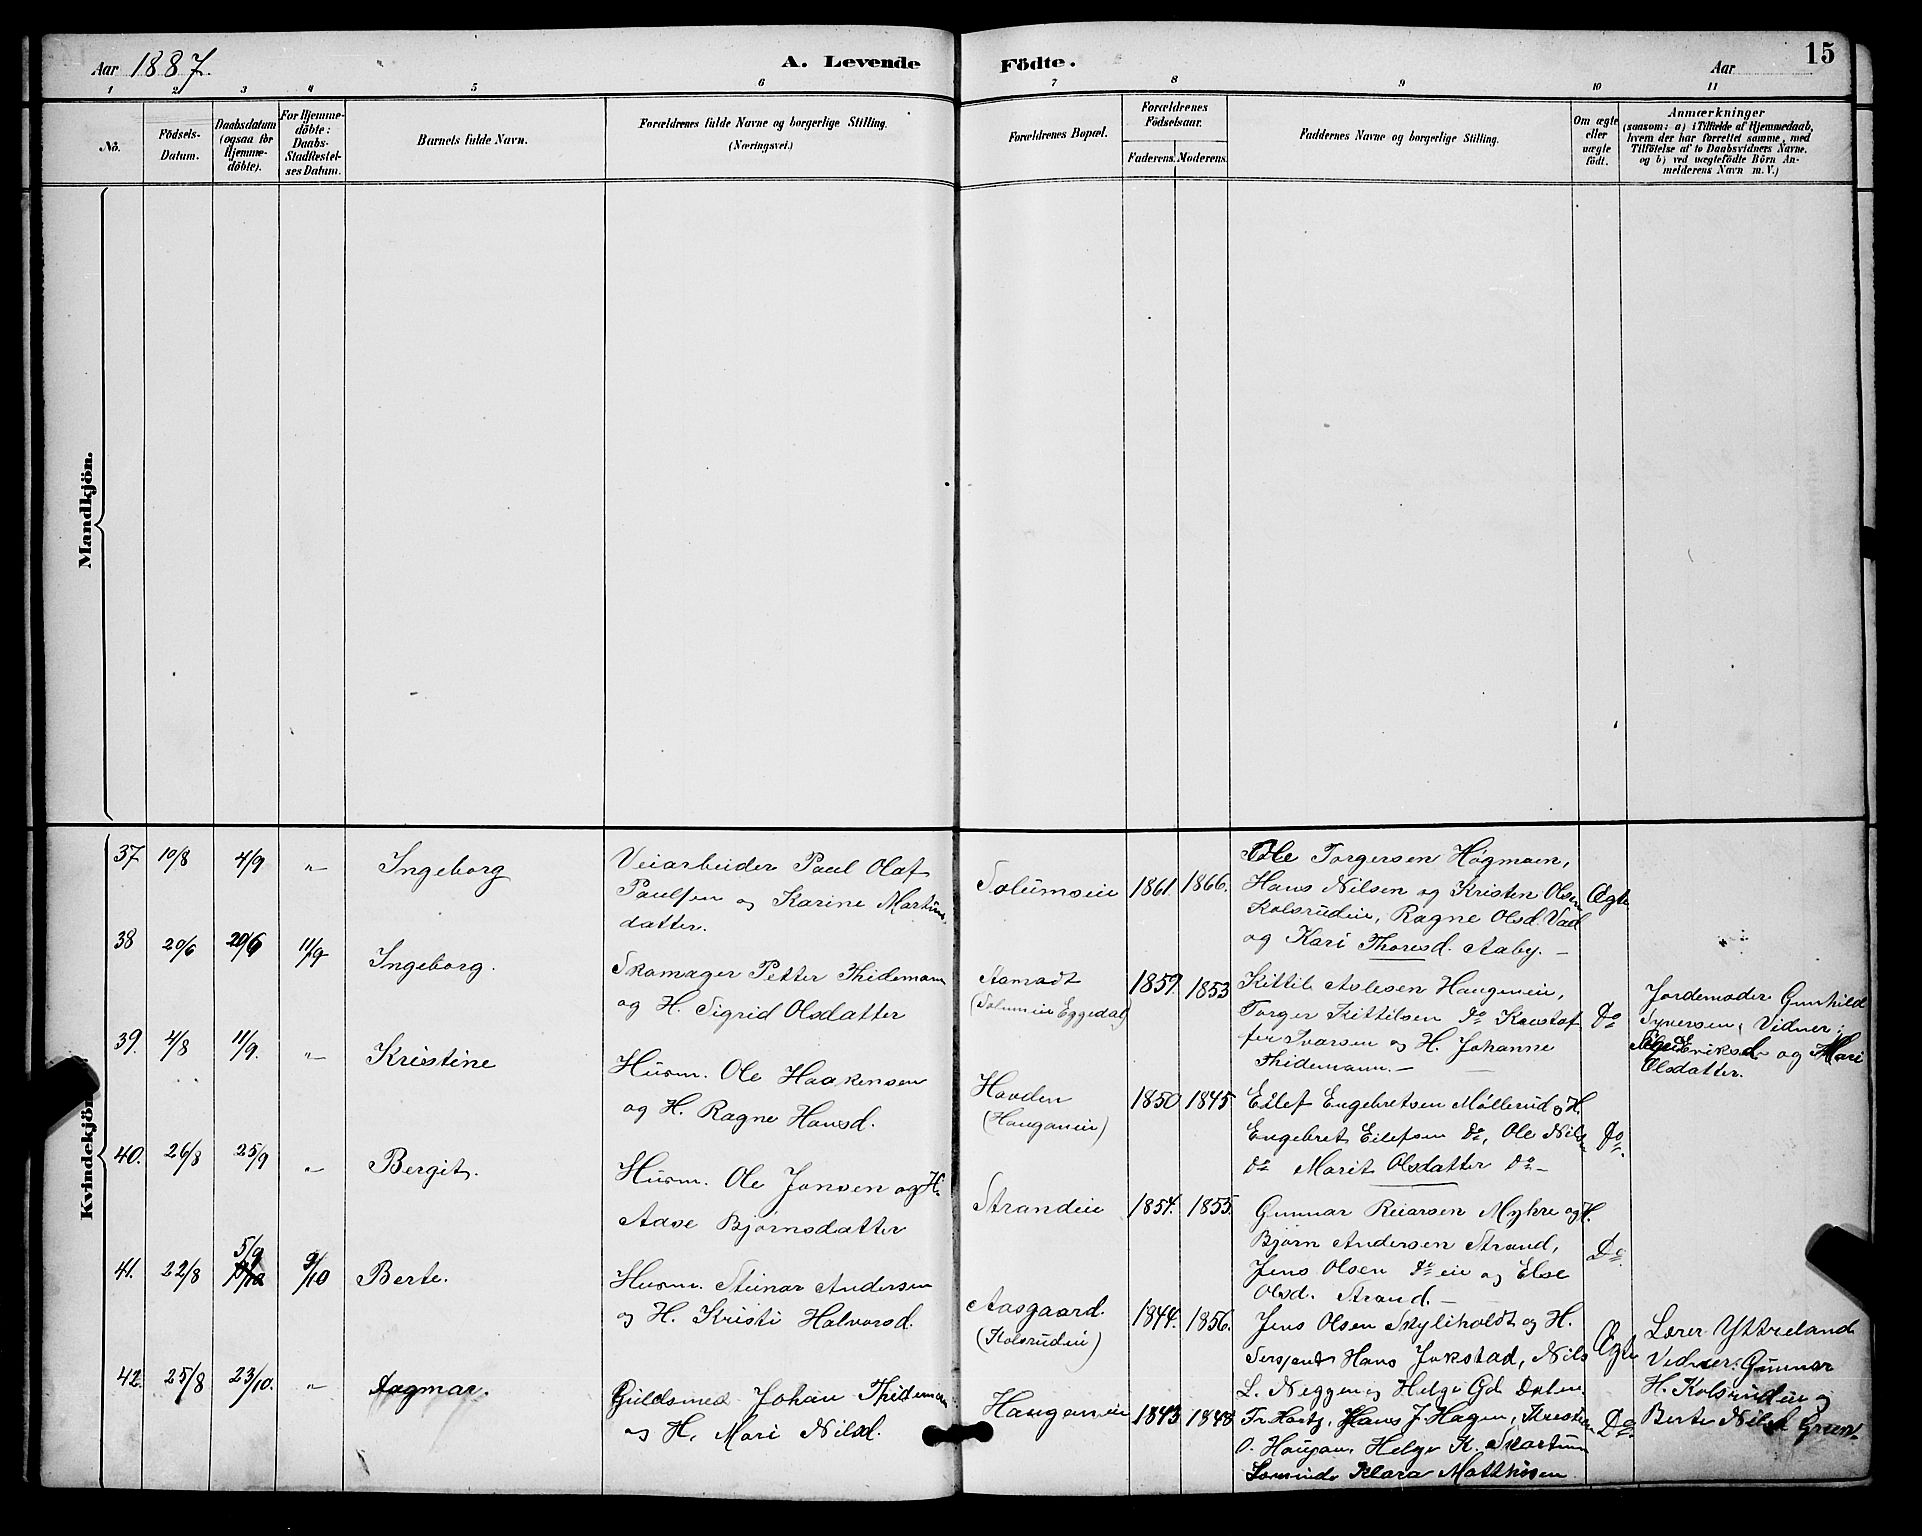 Aar 1887.
A. Levende Födte.
Aar
15
1 2 3 4 5 6 7 8 9 10 11
No.
Födsels-
Datum.
Daabsdatum
(ogsaa for
Hjemme-
döbte).
For Hjemme-
döbte:
Daabs-
Stadfæstel-
ses Datum.
Barnets fulde Navn.
Forældrenes fulde Navne og borgerlige Stilling.
(Næringsvei.)
Forældrenes Bopæl.
Forældrenes
Födselsaar.
Faderens. Moderens.
Faddernes Navne og borgerlige Stilling.
Om ægte
eller
uægte
födt.
Anmærkninger
(saasom: a) i Tilfælde af Hjemmedaab,
hvem der har forrettet samme, med
Tilföielse af to Daabsvidners Navne.
og b) ved uægtefödte Börn An-
melderens Navn m. V.)
Mandkjön.
Kvindekjön.
37. 10/8 4/9 " Ingeborg
Veiarbeider Paul Olaf
Paulsen og Karine Martins
datter.
Solumseie 1861. 1866.
Ole Torgersen Høgmoen,
Hans Nilsen og Kristen Olsen
Kolsrudeie, Ragne Olsd. Vad
og Kari Thoresd. Aaby. —
Ægte
38 20/6 20/6 11/9 Ingeborg.
Skomager Petter Thidemann
og H. Sigrid Olsdatter
Asmadt
(Solumeie Eggedal)
1859. 1853
Kittil Aslesen Haugeneie,
Torger Kittilsen do Kristof
fer Ivarsen og H. Johanne
Thidemann. —
Do
Jordemoder Gunhild
Syversen, Vidner:
Eriksd. og Mari
Olsdatter.
39. 4/8 11/9. " Kristine
Husm. Ole Haakensen
og H. Ragne Hansd.
Hovden
(Hauganeie)
1850 1845
Eilef Engebretsen Møllerud og H.
Engebret Eilefsen do, Ole Nilsen
do Marit Olsdatter do —
Do.
40. 26/8 25/9 " Bergit.
Husm. Ole Jonsen og H.
Aase Bjørnsdatter
Strandeie 1854. 1855.
Gunnar Reiarsen Myhre og H.
Bjørn Andersen Strand,
Jens Olsen do eie og Else
Olsd. Strand. —
Do.
41. 22/8 5/9 9/10 Berte.
Husm. Steinar Andersen
og H. Kristi Halvorsd.
Aasgaard.
(Kolsrudeie)
1844. 1856.
Jens Olsen Skyliholdt og H.
Sersjant Hans Jokstad, Nils
L. Neggen og Helge Gd.
Ægte
Lærer Yttreland
Vidner: Gunnar
H. Kolsrudeie og
Berte Nilsd. Green.
42. 25/8 23/10. " Dagmar.
Guldsmed Johan Thidemann
og H. Mari Nilsd.
Hauganeie 1843 1848
Hans J. Hagen, Kristian
O. Haugan, Helge K. Skartum
Klara Matthisen
Do.